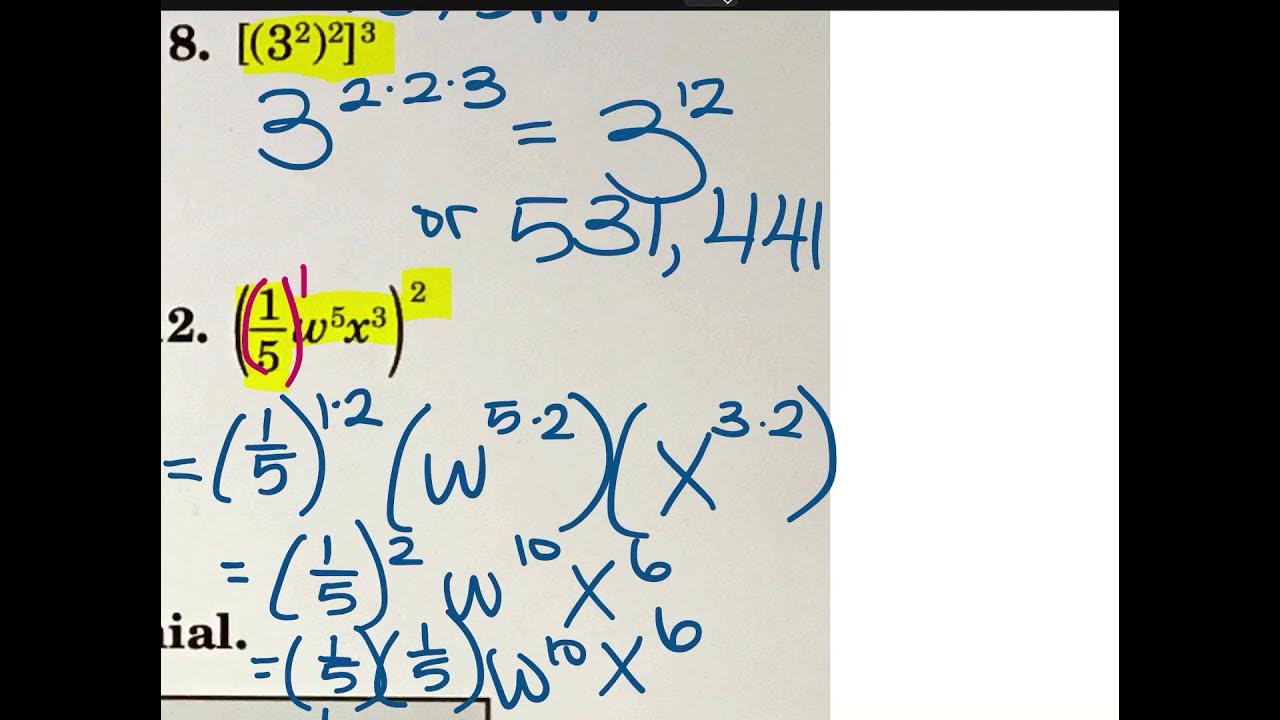 8. [(3²)²]³
3^2·2·3 = 3^12
or 531,441
2. ((1/5)^1 w⁵x³)²
= (1/5)^1·2 (w^5·2)(x^3·2)
= (1/5)² w^10 x^6
nial.
= (1/5)(1/5) w^10 x^6